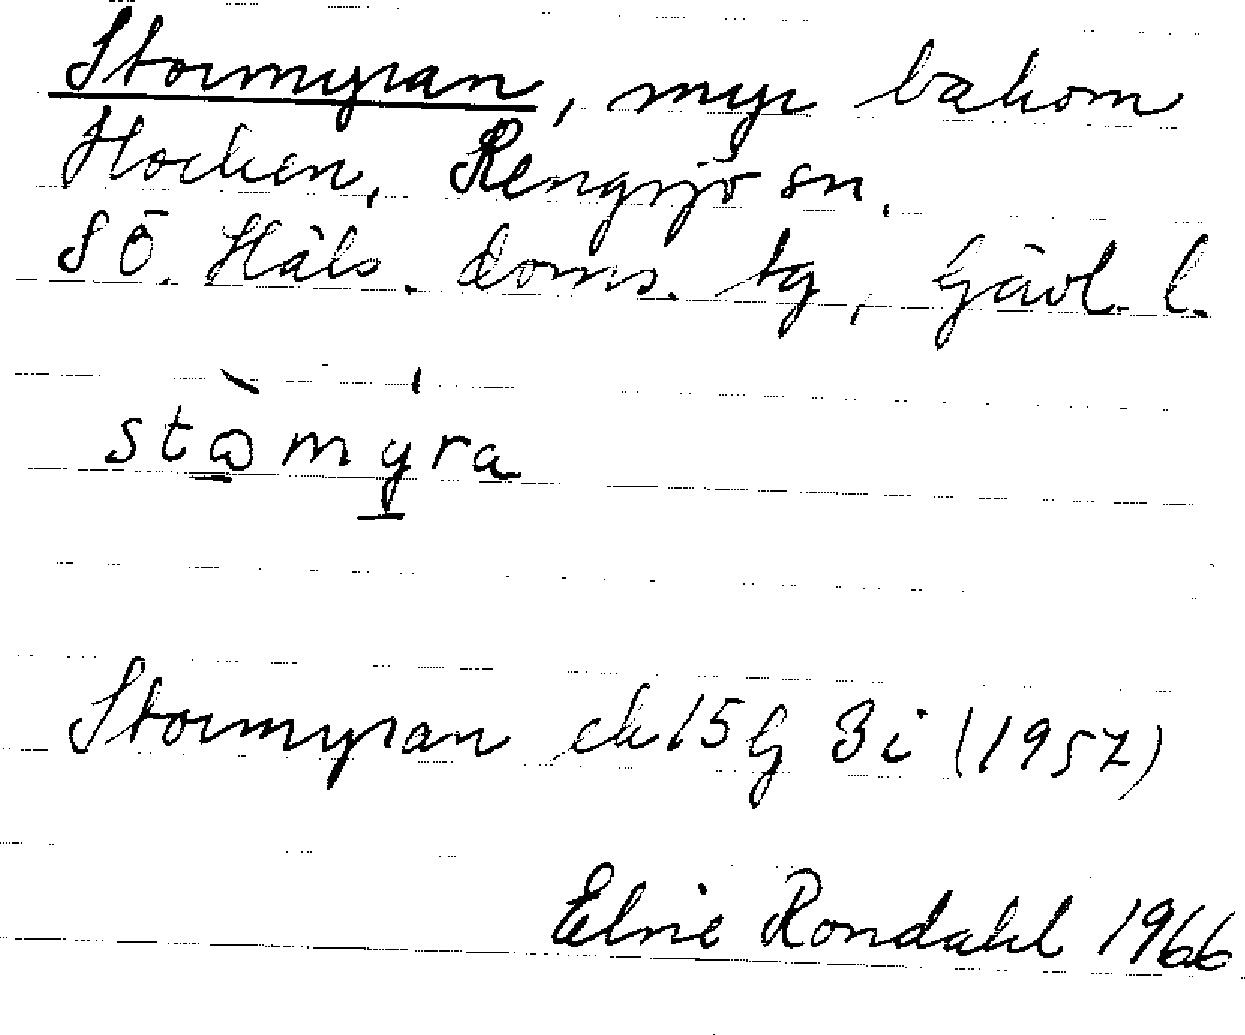 Stormyran, myr bakom
Hocken, Rengsjö sn.
SÖ. Häls. doms. tg, Gävl. l.
stǫ̀mýra
Stormyran ek 15G 3i (1957)
Elvie Rondahl 1966